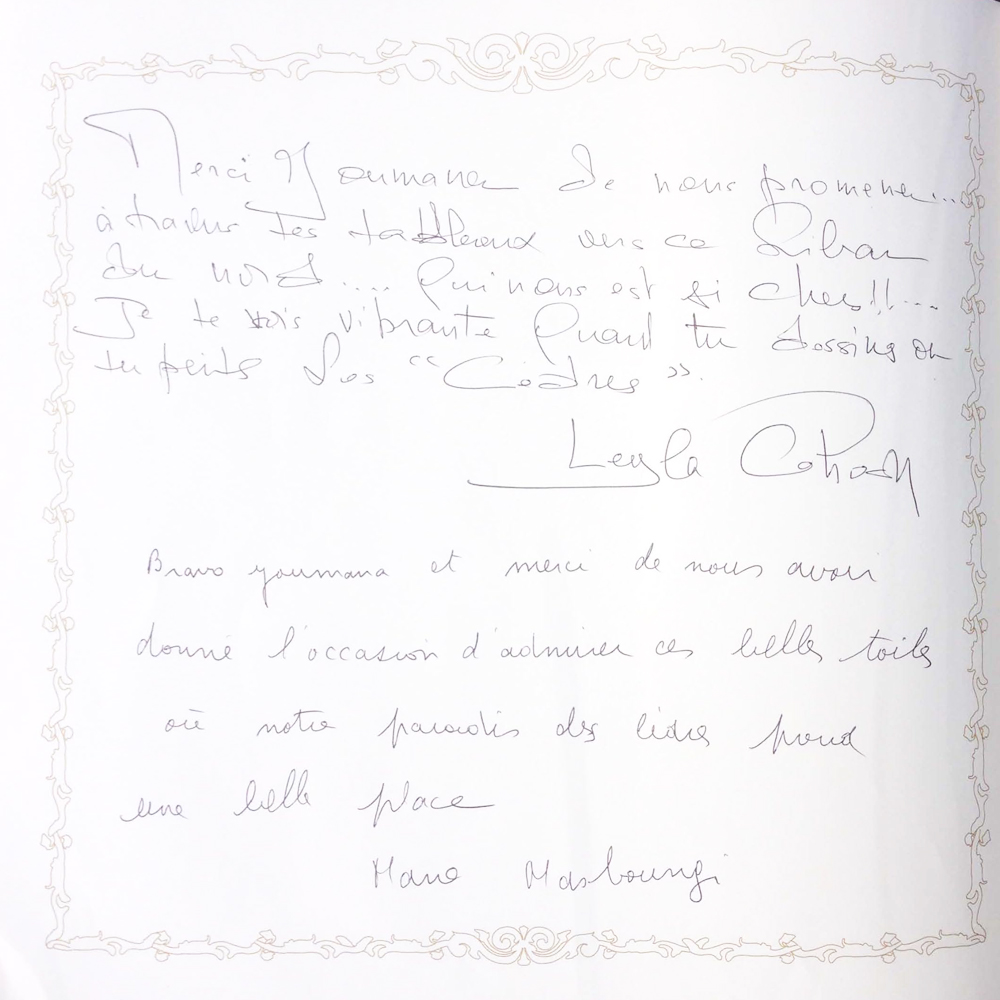 Merci Youmana de nous promener...
à travers tes tableaux vers ce Liban
du nord.... qui nous est si cher!!...
Je te vois vibrante quand tu dessines ou
tu peins Les "Cèdres".
Leyla
Bravo youmana et merci de nous avoir
donné l'occasion d'admirer ces belles toiles
où notre paradis des cèdres prend
une belle place
Masboungi